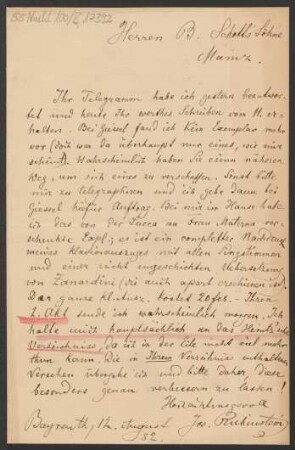 55 Nachl. 100/B, 17392
Herren B. Schott's Söhne
Mainz.
Ihr Telegramm habe ich gestern beantwor-
tet und heute Ihr werthes Schreiben vom 11. er-
halten. Bei Giessel fand ich kein Exemplar mehr
vor (doch war da überhaupt nur eines, wie mir
scheint). Wahrscheinlich haben Sie einen näheren
Weg, um sich eines zu verschaffen. Sonst bitte
mir zu telegraphiren und ich gebe dann bei
Giessel hiefür Auftrag. Bei mir im Hause hatte
ich das von der Lucca an Frau Materna ver-
schenkte Expl.; es ist ein completter Nachdruck
meines Klavierauszuges mit allen Singstimmen
und einer nicht ungeschickten Uebersetzung
von Zanardini (die auch apart erschienen ist).
Der ganze kostet 20 fcs. – Ihren
2. Akt sende ich wahrscheinlich morgen. Ich
halte mich hauptsächlich an das
Verzeichniss, da ich in der Eile nicht viel mehr
thun kann. Die in Ihrem Verzeichniss enthaltenen
Versehen übergehe ich und bitte daher, diese
besonders genau verbessern zu lassen!
Hochachtungsvoll
Bayreuth, August Jos. Rubinstein
82.